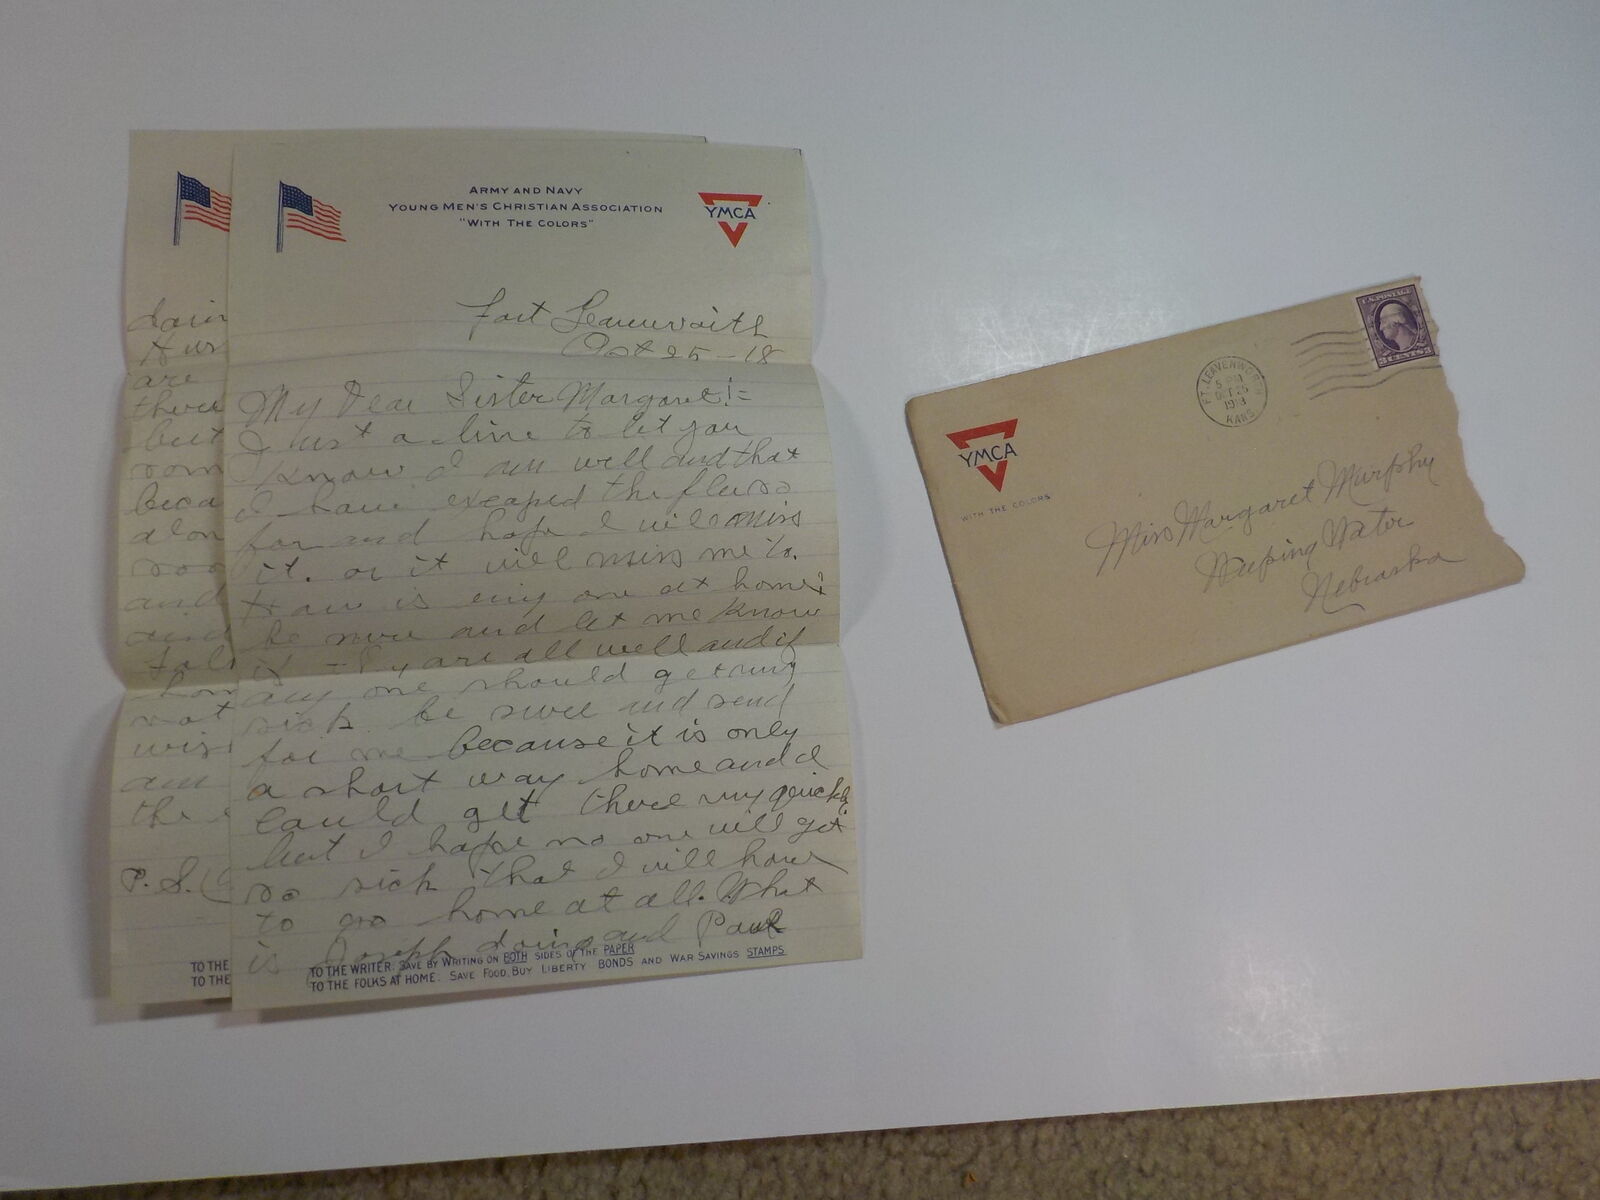 ARMY AND NAVY
YOUNG MEN'S CHRISTIAN ASSOCIATION
"WITH THE COLORS"
YMCA
Fort Leavenworth
Oct 25-18
My Dear Sister Margaret:-
Just a line to let you
know I am well and that
I have excaped the flu so
far and hope I will miss
it. or it will miss me to.
How is evry one at home?
be sure and let me know
if you are all well and if
any one should get very
sick be sure and send
for me because it is only
a short way home and I
could get there very quickly
but I hope no one will get
so sick that I will have
to go home at all. What
is Joseph doing and Paul
TO THE WRITER: SAVE BY WRITING ON BOTH SIDES OF THE PAPER
TO THE FOLKS AT HOME. SAVE FOOD, BUY LIBERTY BONDS AND WAR SAVINGS STAMPS
doin
are
there
but
som
beca
alon
soo
and
and
not
wis
am
the
P.S.
TO THE
TO THE
YMCA
WITH THE COLORS
FT. LEAVENWORTH
5 PM
OCT 25
1918
KANS.
U.S. POSTAGE
3 CENTS 3
Miss Margaret Murphy
Weeping Water
Nebraska